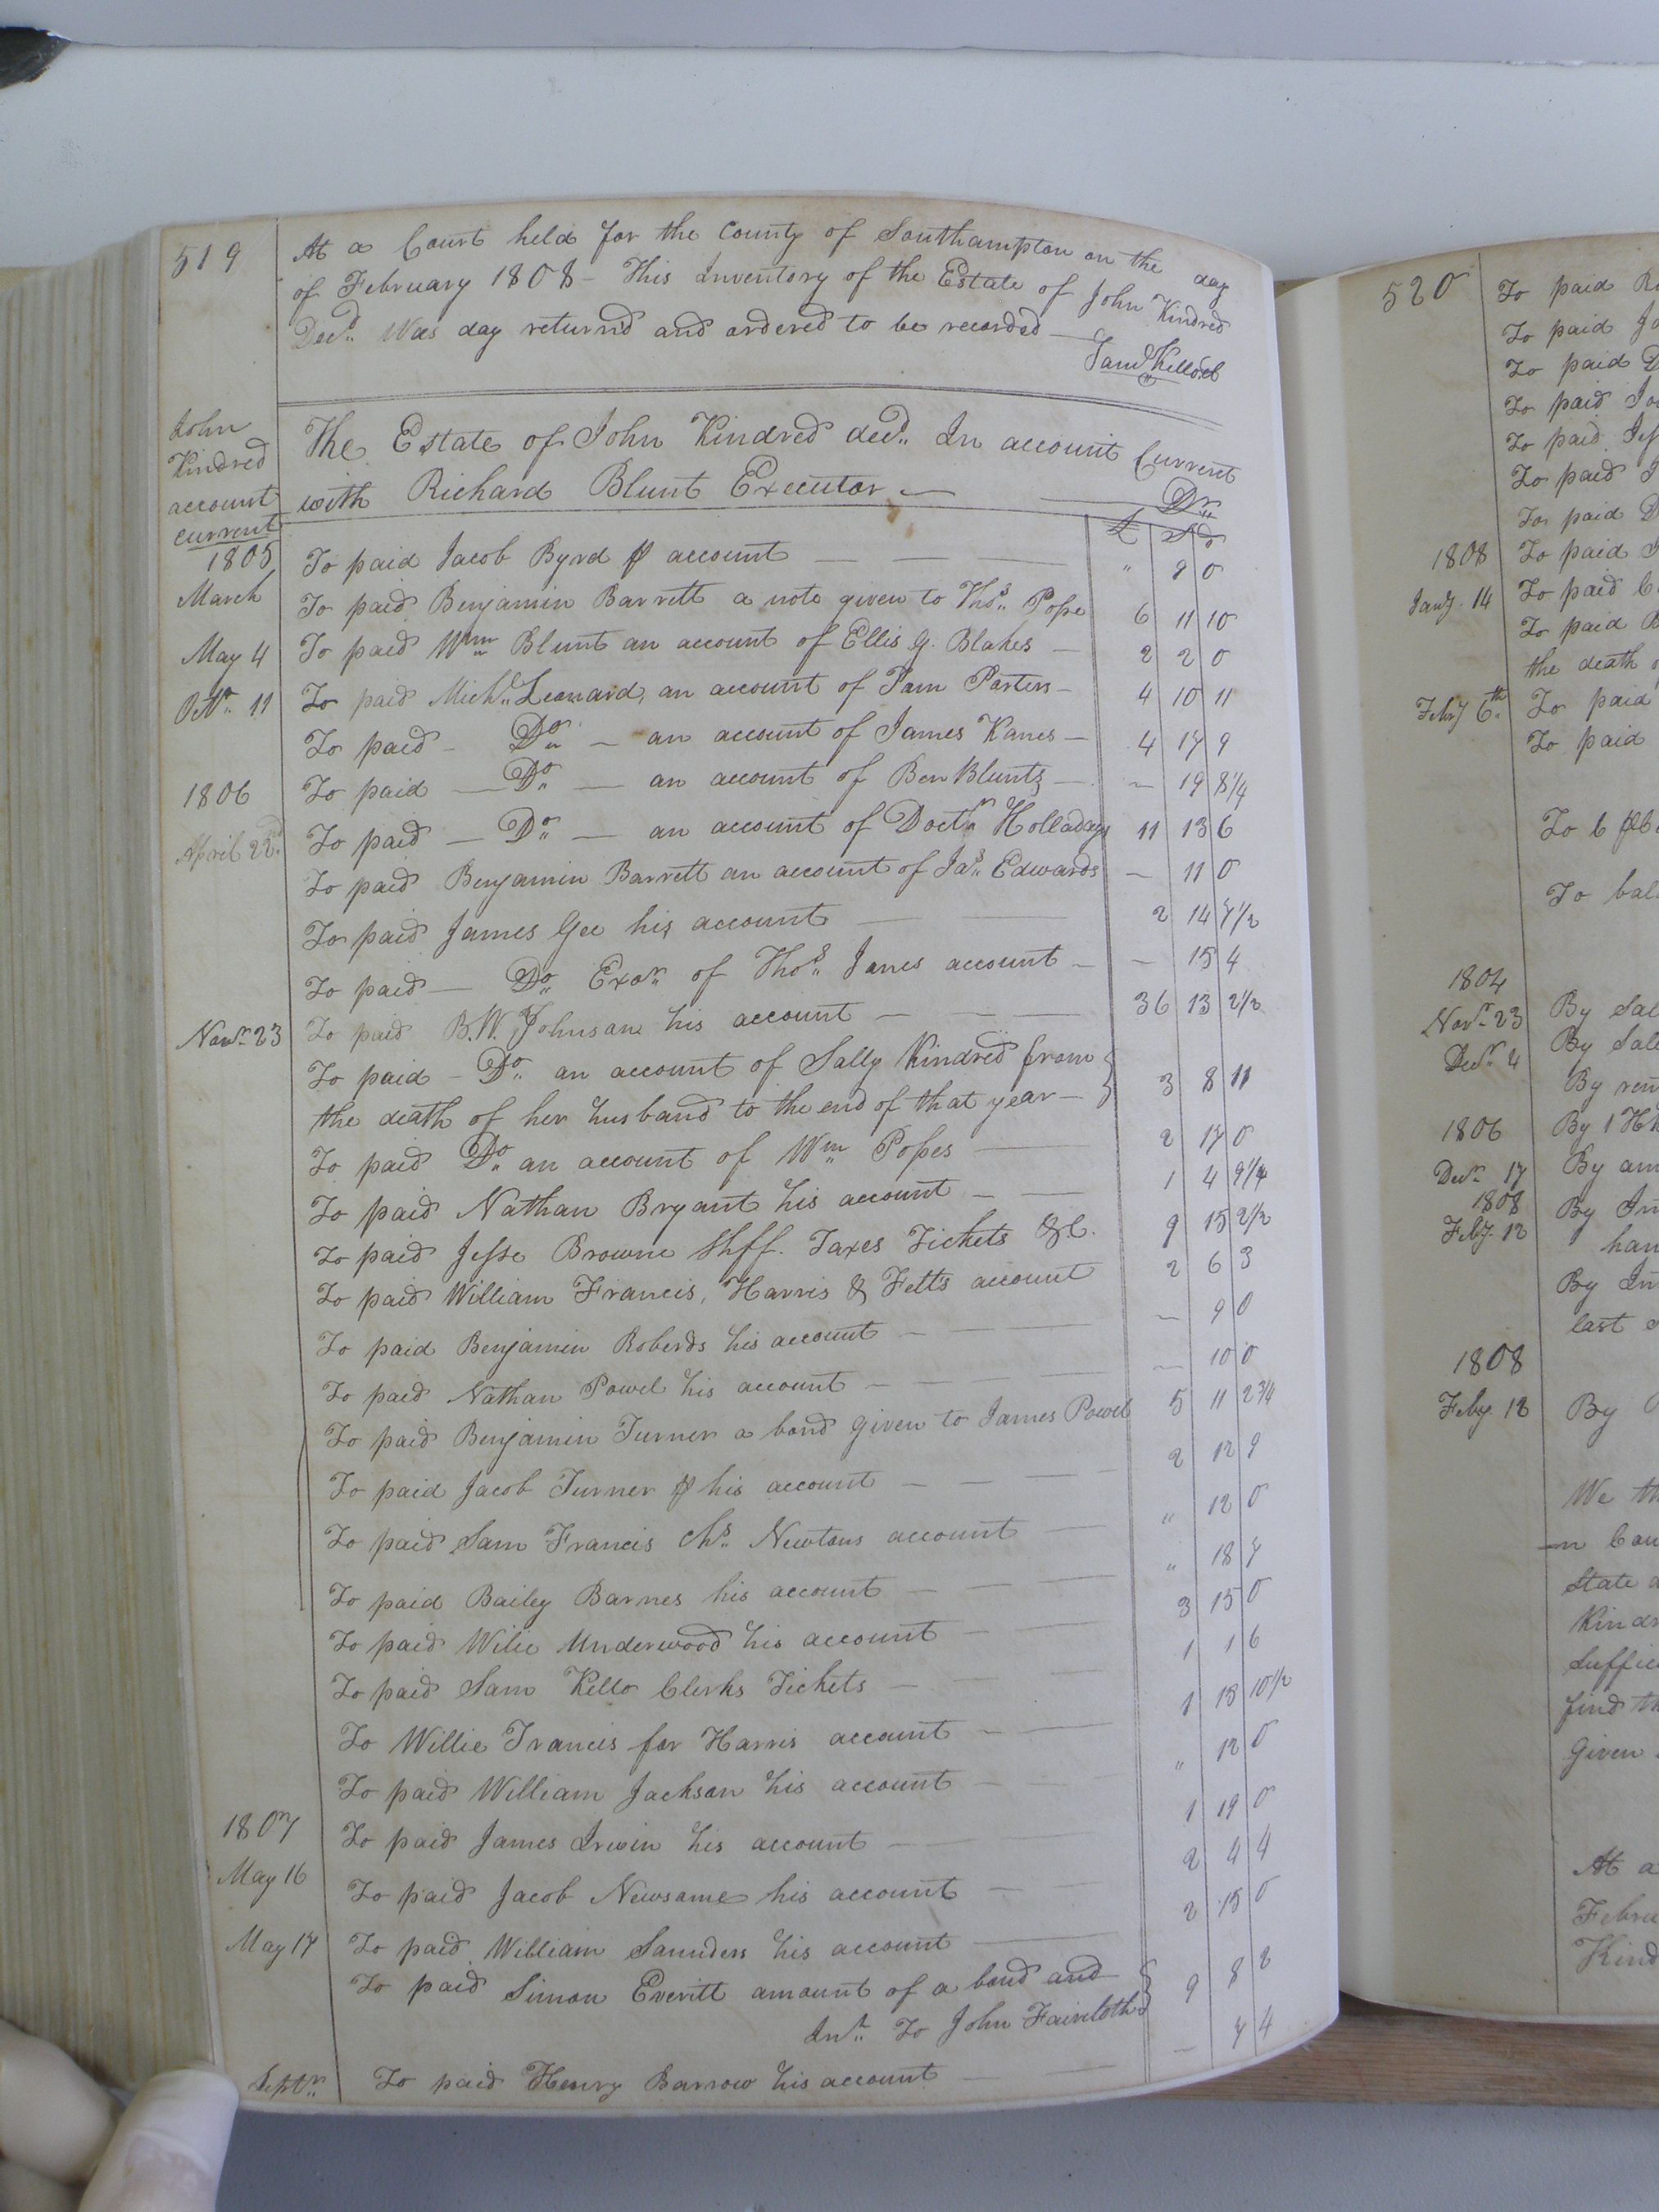 519
At a Court held for the County of Southampton on the day
of February 1808 - This Inventory of the Estate of John Kindred
Decd. Was day returnd and ordered to be recorded —
Saml Kello
John
Kindred
account
current
The Estate of John Kindred decd. In account Current
with Richard Blunt Executor — Dr.
£ S D
1805 To paid Jacob Byrd ⅌ account — — " 9 0
March To paid Benjamin Barrett a note given to Thos. Pope 6 11 10
May 4 To paid Wm Blunt an account of Ellis G. Blakes — 2 2 0
Octr. 11 To paid Michl. Leonard, an account of Pam Porters — 4 10 11
To paid - Do. — an account of James Kanes — 4 17 9
1806 To paid — Do. — an account of Ben Blunts — — 19 8 1/4
April 22d. To paid — Do. — an account of Doctr. Holladays 11 13 6
To paid Benjamin Barrett an account of Jas. Edwards — 11 0
To paid James Gee his account — — 2 14 7 1/2
To paid — Do. Exor. of Thos. Janes account — — 15 4
Novr. 23 To paid B.W. Johnson his account — — — 36 13 2 1/2
To paid - Do. an account of Sally Kindred from
the death of her husband to the end of that year — 3 8 11
To paid Do. an account of Wm Popes — 2 17 0
To paid Nathan Bryant his account — — 1 4 9 1/4
To paid Jesse Browne Shff. Taxes Tickets &C. 9 15 2 1/2
To paid William Francis, Harris & Fetts account 2 6 3
To paid Benjamin Roberds his account — — — — 9 0
To paid Nathan Powel his account — — — — 10 0
To paid Benjamin Turner a bond given to James Powel 5 11 2 3/4
To paid Jacob Turner ⅌ his account — — — 2 12 9
To paid Sam Francis Chs. Newtons account — " 12 0
To paid Bailey Barnes his account — — — " 18 7
To paid Wilie Underwood his account — — 3 15 0
To paid Sam Kello Clerks Tickets — — 1 1 6
To Willie Francis for Harris account — — 1 15 10 1/2
To paid William Jackson his account — — " 12 0
1807 To paid James Irwin his account — 1 19 0
May 16 To paid Jacob Newsame his account — — 2 4 4
May 17 To paid William Saunders his account — 2 15 0
To paid Simon Everitt amount of a bond and
Int. To John Faircloth 9 8 2
Septr. To paid Henry Barrow his account — — — 7 4
520
To paid
To paid
To paid
To paid
To paid
To paid
To paid
1808 To paid
Jany. 14 To paid
To paid
the death
Feby 6th. To paid
To paid
To
To
1804
Novr. 23 By
Decr. 4 By
By
1806 By 1
Decr. 17 By
1808 By
Feby. 12
By
last
1808
Feby. 12 By
We
State
find
Given
At a